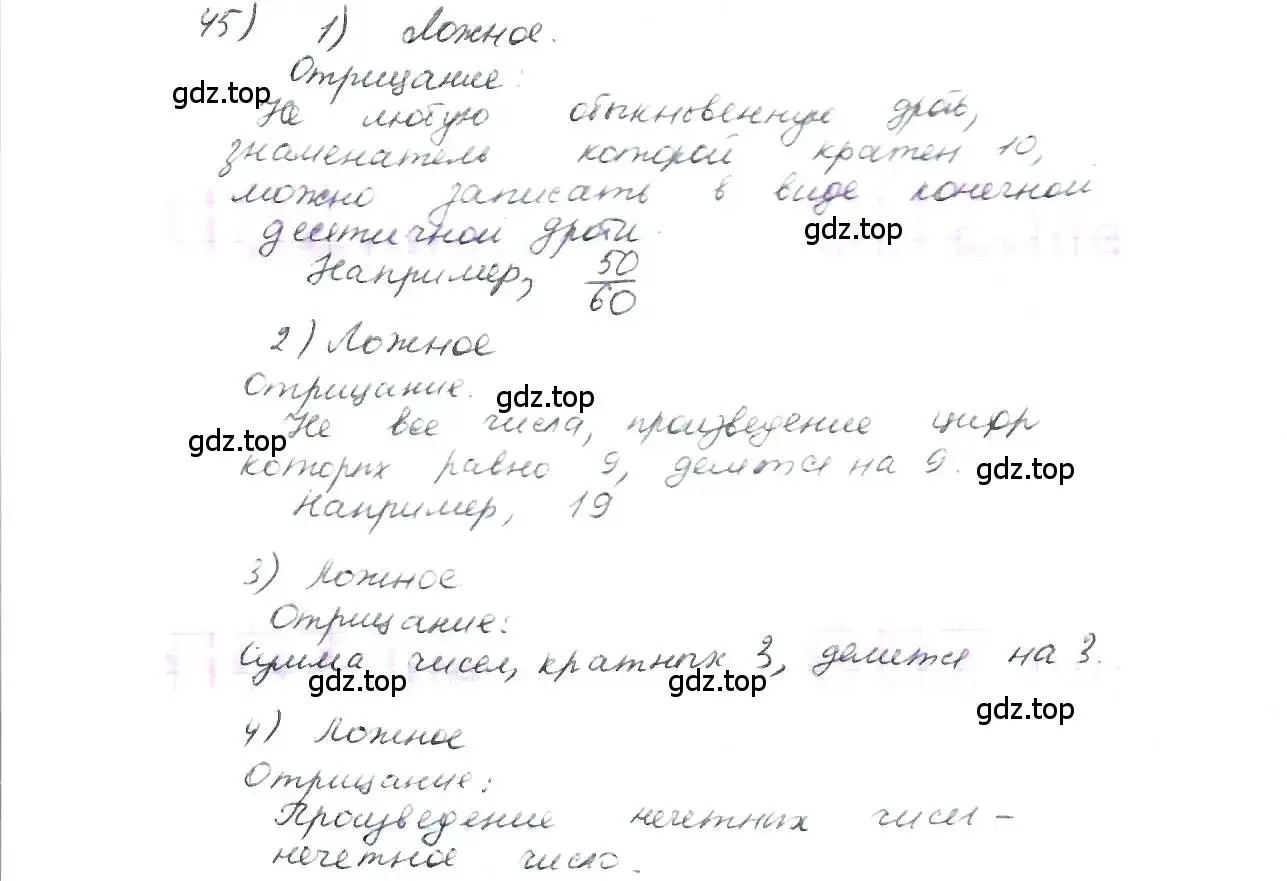 45) 1) Ложное.
Отрицание:
gdz.top
Не любую обыкновенную дробь,
знаменатель которой кратен 10,
можно записать в виде конечной
десятичной дроби.
gdz.top
Например, 50/60
2) Ложное
Отрицание.
gdz.top
Не все числа, произведение цифр
gdz.top
которых равно 9, делятся на 9.
gdz.top
Например, 19
3) Ложное
Отрицание:
Сумма чисел, кратных 3, делится на 3.
gdz.top gdz.top
gdz.top
4) Ложное
Отрицание:
Произведение нечетных чисел -
нечетное число.